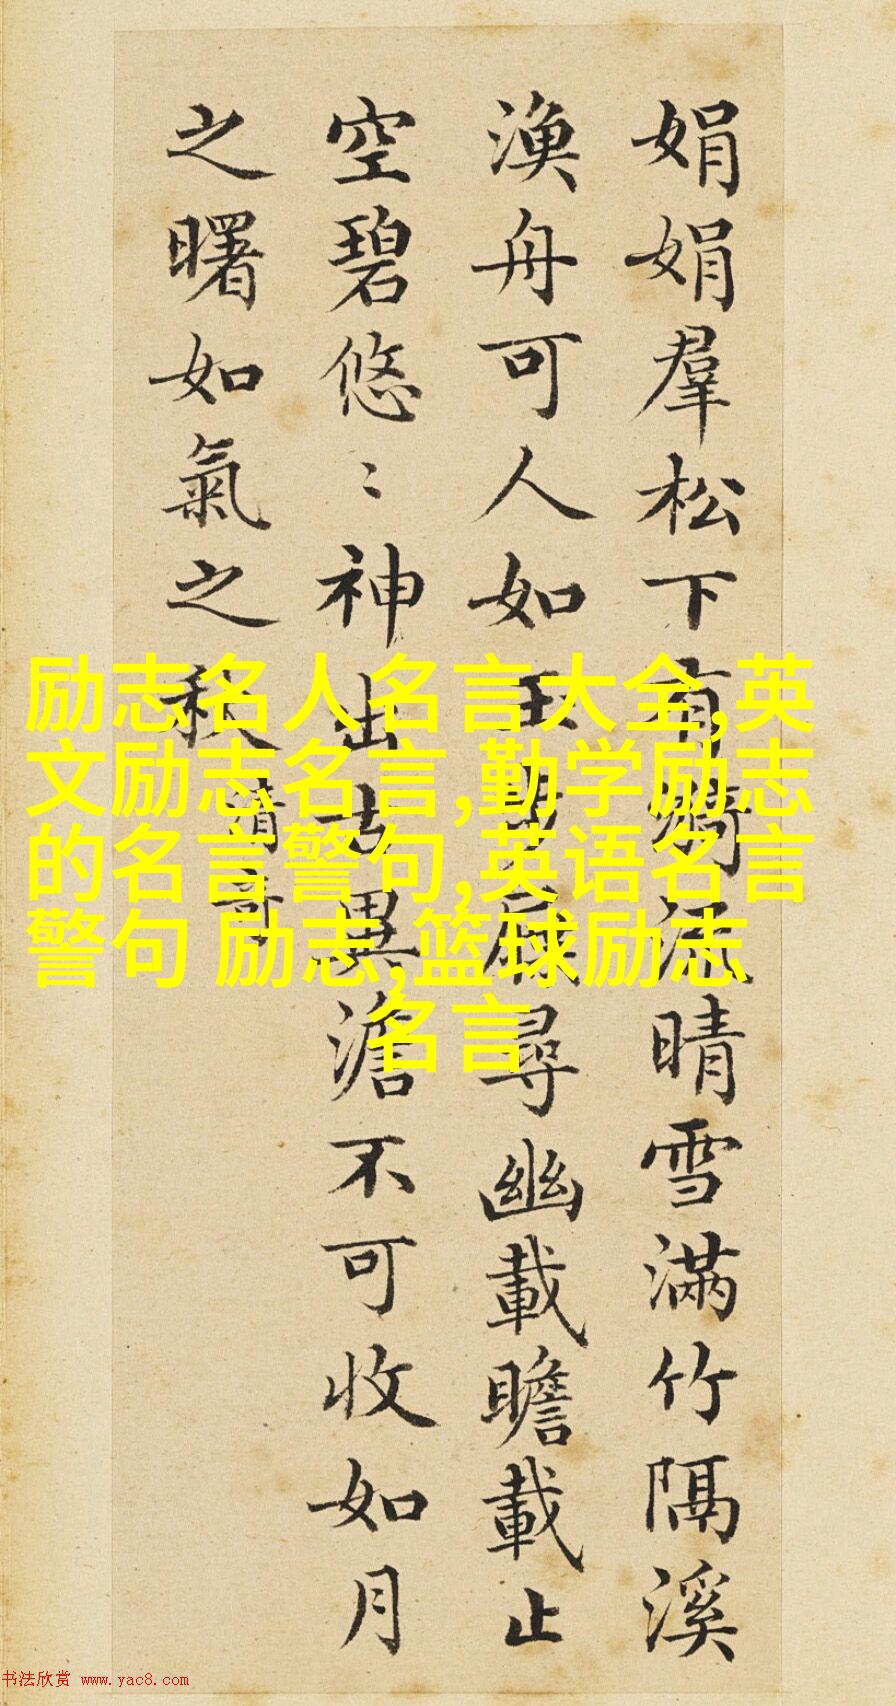 娟娟羣松下有漪流晴雪滿竹隔溪
漁舟可人如玉步屧尋幽載瞻載止
空碧悠〻神出古異澹不可收如月
之曙如氣之秋 清奇
励志名人名言大全,英
文励志名言,勤学励志
的名言警句,英语名言
警句 励志,篮球励志
名言
书法欣赏 www.yac8.com